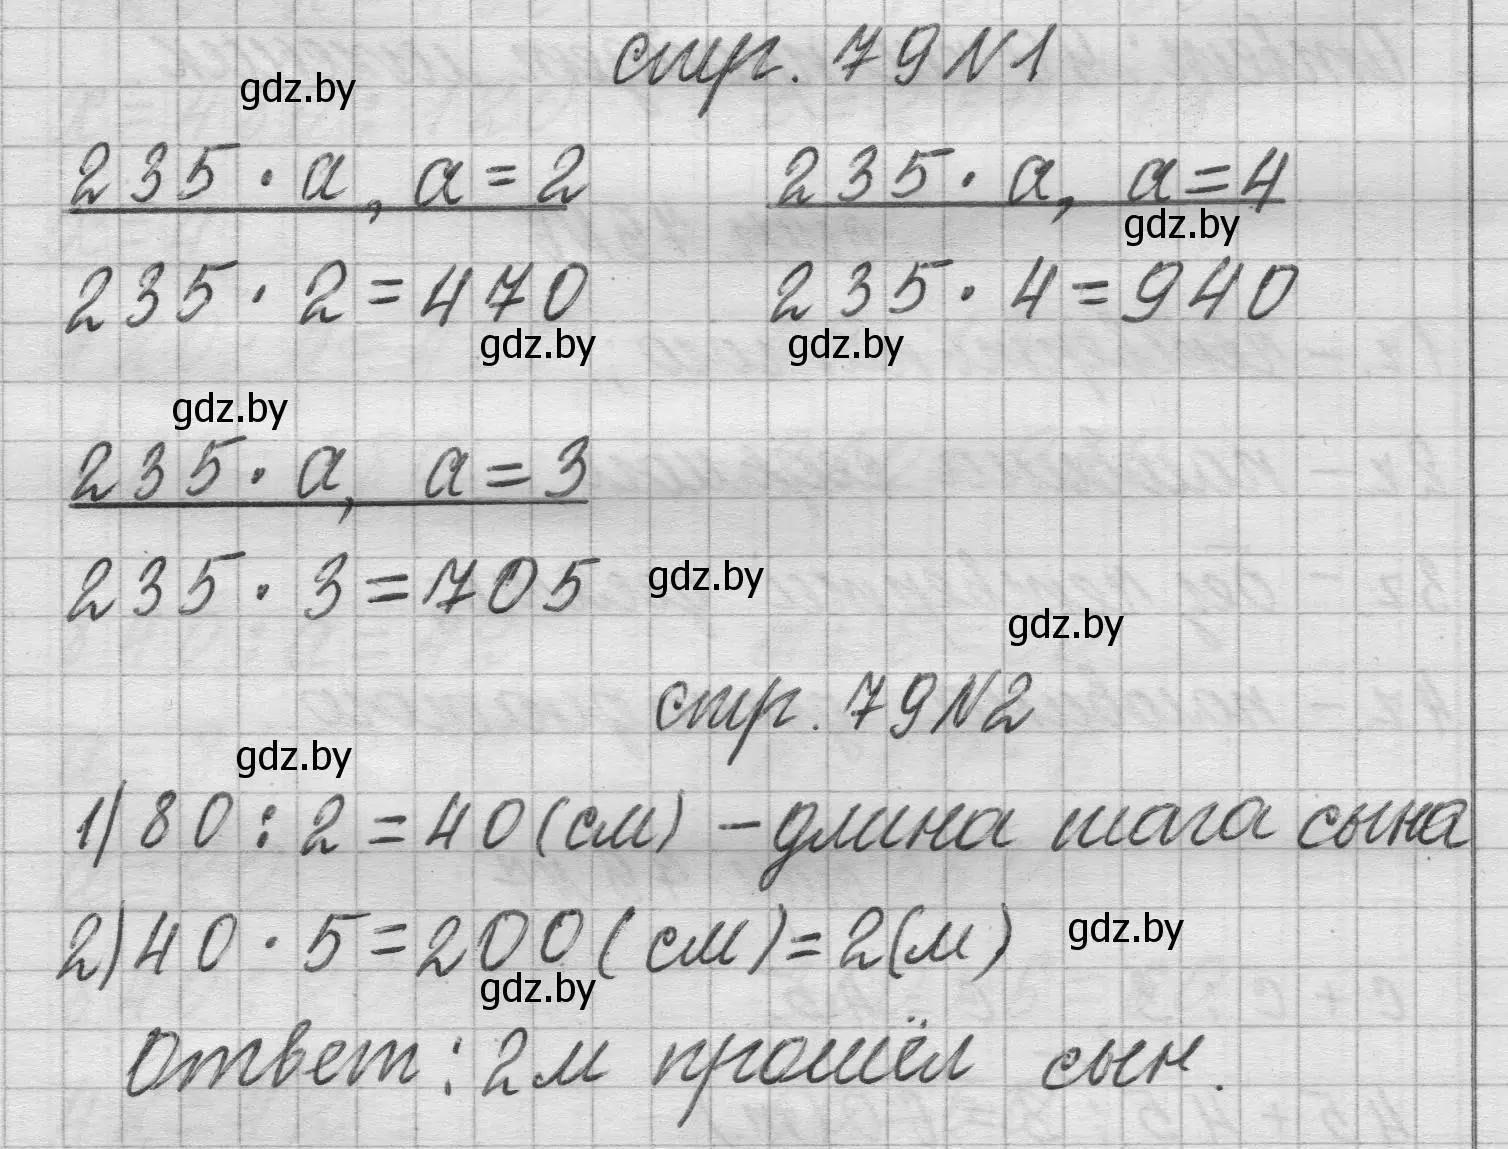 стр. 79 N1
gdz.by
235 · a, a = 2 235 · a, a = 4
gdz.by
235 · 2 = 470 235 · 4 = 940
gdz.by gdz.by
gdz.by
235 · a, a = 3
235 · 3 = 705 gdz.by
gdz.by
стр. 79 N2
gdz.by
1) 80 : 2 = 40 (см) – длина шага сына
2) 40 · 5 = 200 (см) = 2 (м) gdz.by
gdz.by
Ответ: 2м прошёл сын.